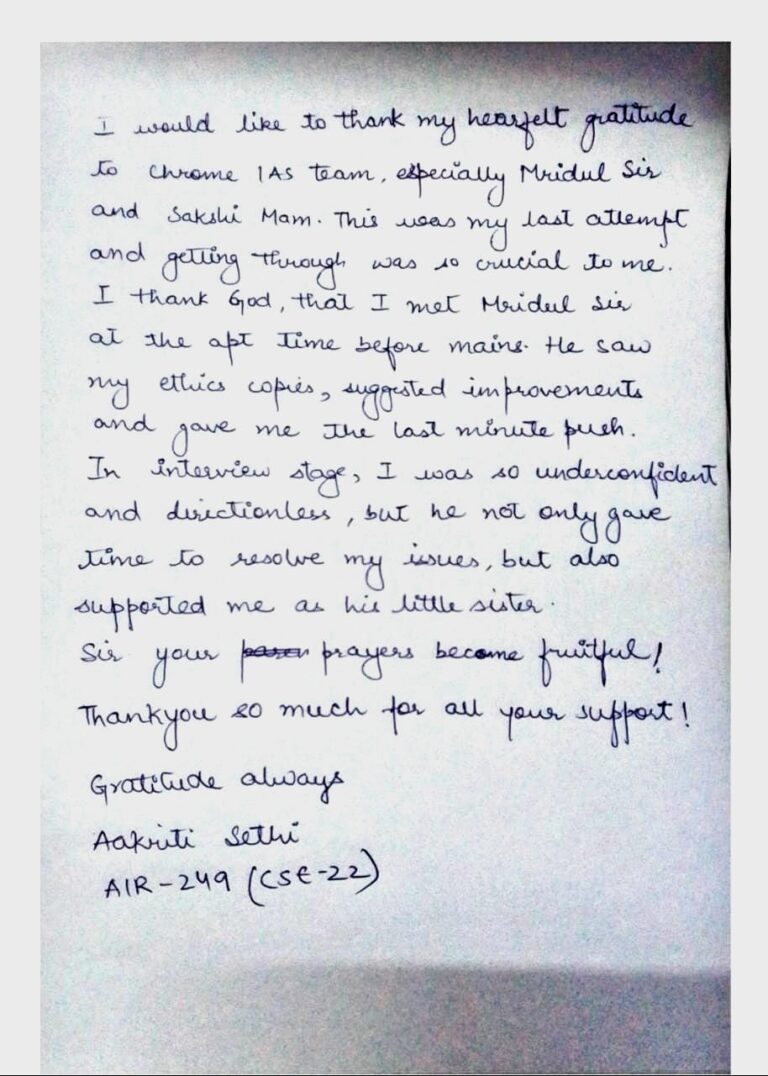 I would like to thank my hearfelt gratitude
to Chrome IAS team, especially Mridul Sir
and Sakshi Mam. This was my last attempt
and getting through was so crucial to me.
I thank God, that I met Mridul Sir
at the apt time before mains. He saw
my ethics copies, suggested improvements
and gave me the last minute push.
In interview stage, I was so underconfident
and directionless, but he not only gave
time to resolve my issues, but also
supported me as his little sister.
Sir your prayers become fruitful!
Thankyou so much for all your support!
Gratitude always
Aakriti Sethi
AIR-249 (CSE-22)